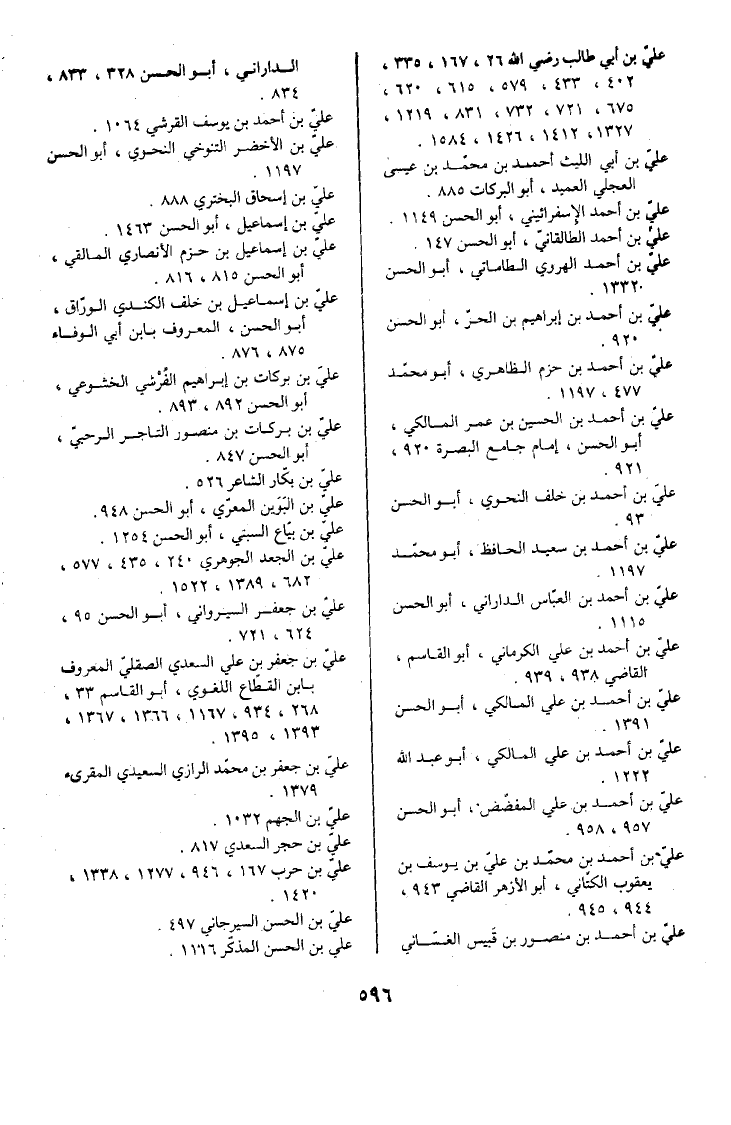 عليّ بن أبي طالب رضي الله ٢٦ ، ١٦٧ ، ٣٣٥ ،
٤٠٢ ، ٤٣٣ ، ٥٧٩ ، ٦١٥ ، ٦٢٠ ،
٦٧٥ ، ٧٢١ ، ٧٣٢ ، ٨٣١ ، ١٢١٩ ،
١٣٢٧ ، ١٤١٢ ، ١٤٢٦ ، ١٥٨٤ .
عليّ بن أبي الليث أحمد بن محمّد بن عيسى
العجلي العميد ، أبو البركات ٨٨٥ .
عليّ بن أحمد الإسفرائيني ، أبو الحسن ١١٤٩ .
عليّ بن أحمد الطالقانيّ ، أبو الحسن ١٤٧ .
عليّ بن أحمد الهروي الطاماتي ، أبو الحسن
١٣٣٢٠ .
عليّ بن أحمد بن إبراهيم بن الحرّ ، أبو الحسن
٩٢٠ .
عليّ بن أحمد بن حزم الظاهري ، أبو محمّد
٤٧٧ ، ١١٩٧ .
عليّ بن أحمد بن الحسين بن عمر المالكي ،
أبو الحسن ، إمام جامع البصرة ٩٢٠ ،
٩٢١ .
عليّ بن أحمد بن خلف النحوي ، أبو الحسن
٩٣ .
عليّ بن أحمد بن سعيد الحافظ ، أبو محمّد
١١٩٧ .
عليّ بن أحمد بن العبّاس الداراني ، أبو الحسن
١١١٥ .
عليّ بن أحمد بن علي الكرماني ، أبو القاسم ،
القاضي ٩٣٨ ، ٩٣٩ .
عليّ بن أحمد بن علي المالكي ، أبو الحسن
١٣٩١ .
عليّ بن أحمد بن علي المالكي ، أبو عبد الله
١٢٢٢ .
عليّ بن أحمد بن علي المفضّض ، أبو الحسن
٩٥٧ ، ٩٥٨ .
عليّ بن أحمد بن محمّد بن عليّ بن يوسف بن
يعقوب الكتّاني ، أبو الأزهر القاضي ٩٤٣ ،
٩٤٤ ، ٩٤٥ .
عليّ بن أحمد بن منصور بن قَبيس الغسّاني
الداراني ، أبو الحسن ٣٢٨ ، ٨٣٣ ،
٨٣٤ .
عليّ بن أحمد بن يوسف القرشي ١٠٦٤ .
عليّ بن الأخضر التنوخي النحوي ، أبو الحسن
١١٩٧ .
عليّ بن إسحاق البختري ٨٨٨ .
عليّ بن إسماعيل ، أبو الحسن ١٤٦٣ .
عليّ بن إسماعيل بن حزم الأنصاري المالقي ،
أبو الحسن ٨١٥ ، ٨١٦ .
عليّ بن إسماعيل بن خلف الكندي الورّاق ،
أبو الحسن ، المعروف بابن أبي الوفاء
٨٧٥ ، ٨٧٦ .
عليّ بن بركات بن إبراهيم القُرْشي الخشوعي ،
أبو الحسن ٨٩٢ ، ٨٩٣ .
عليّ بن بركات بن منصور التاجر الرحبيّ ،
أبو الحسن ٨٤٧ .
عليّ بن بكّار الشاعر ٥٢٦ .
عليّ بن البَوَين المعرّي ، أبو الحسن ٩٤٨ .
عليّ بن بيّاع السبني ، أبو الحسن ١٢٥٤ .
عليّ بن الجعد الجوهري ٢٤٠ ، ٤٣٥ ، ٥٧٧ ،
٦٨٢ ، ١٣٨٩ ، ١٥٢٢ .
عليّ بن جعفر السيرواني ، أبو الحسن ٩٥ ،
٦٢٤ ، ٧٢١ .
عليّ بن جعفر بن علي السعدي الصقليّ المعروف
بابن القطّاع اللغوي ، أبو القاسم ٣٣ ،
٢٦٨ ، ٩٣٤ ، ١١٦٧ ، ١٣٦٦ ، ١٣٦٧ ،
١٣٩٣ ، ١٣٩٥ .
عليّ بن جعفر بن محمّد الرازي السعيدي المقرىء
١٣٧٩ .
عليّ بن الجهم ١٠٣٢ .
عليّ بن حجر السعدي ٨١٧ .
عليّ بن حرب ١٦٧ ، ٩٤٦ ، ١٢٧٧ ، ١٣٣٨ ،
١٤٢٠ .
عليّ بن الحسن السيرجاني ٤٩٧ .
علي بن الحسن المذكّر ١١٦٦ .
٥٩٦